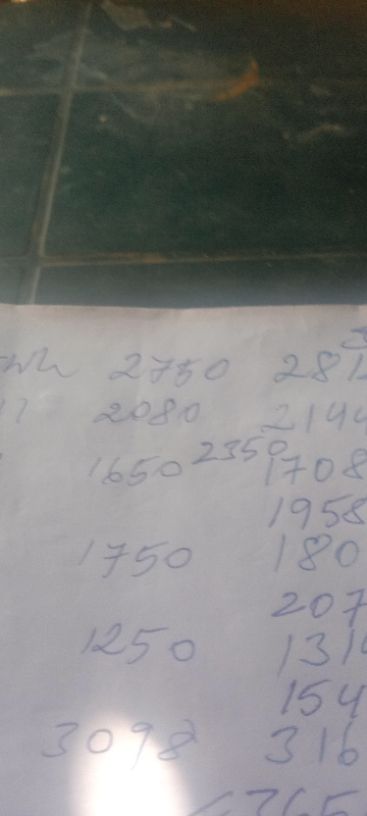 2750 281
2080 2144
1650 2350 1708
1958
1750 180
207
1250 131
154
3098 316
365